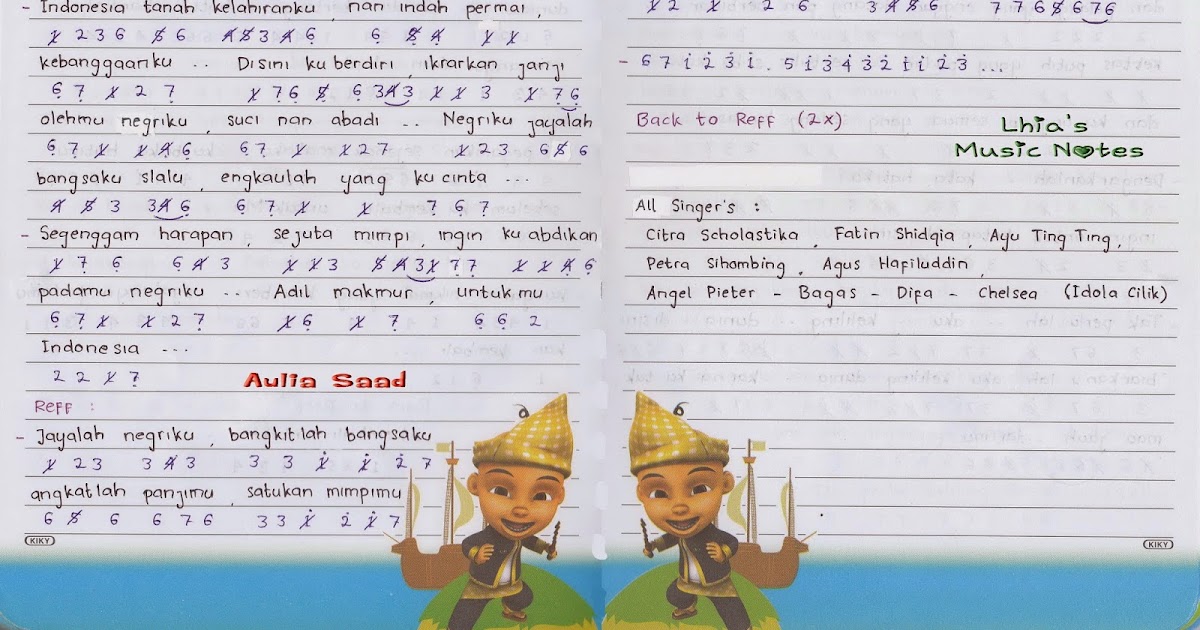 - Indonesia tanah kelahiranku, nan indah permai,
1 2 3 6 5 6 4 5 3 4 6 6 5 4 1 1
kebanggaanku .. Disini ku berdiri, ikrarkan janji
6 7 1 2 7 1 7 6 5 6 3 4 3 1 1 3 1 7 6
olehmu negriku, suci nan abadi .. Negriku jayalah
6 7 1 1 4 6 6 7 1 1 2 7 1 2 3 6 5 6
bangsaku slalu, engkaulah yang ku cinta ...
4 5 3 3 4 6 6 7 1 1 7 6 7
- Segenggam harapan, sejuta mimpi, ingin ku abdikan
1 7 6 6 4 3 1 1 3 5 4 3 1 7 7 1 1 4 6
padamu negriku .. Adil makmur, untukmu
6 7 1 1 2 7 1 6 1 7 6 6 2
Indonesia ...
2 2 1 7
Aulia Saad
Reff :
- Jayalah negriku, bangkitlah bangsaku
1 2 3 3 4 3 3 3 1 1 2 7
angkatlah panjimu, satukan mimpimu
6 5 6 6 7 6 3 3 1 2 1 7
KIKY
1 2 1 2 6 3 4 5 6 7 7 6 5 6 7 6
- 6 7 1 2 3 1 . 5 1 3 4 3 2 1 1 2 3 ...
Back to Reff (2x)
Lhia's
Music Notes
All Singer's :
Citra Scholastika, Fatin Shidqia, Ayu Ting Ting,
Petra Sihombing, Agus Hafiluddin,
Angel Pieter - Bagas - Difa - Chelsea (Idola Cilik)
KIKY